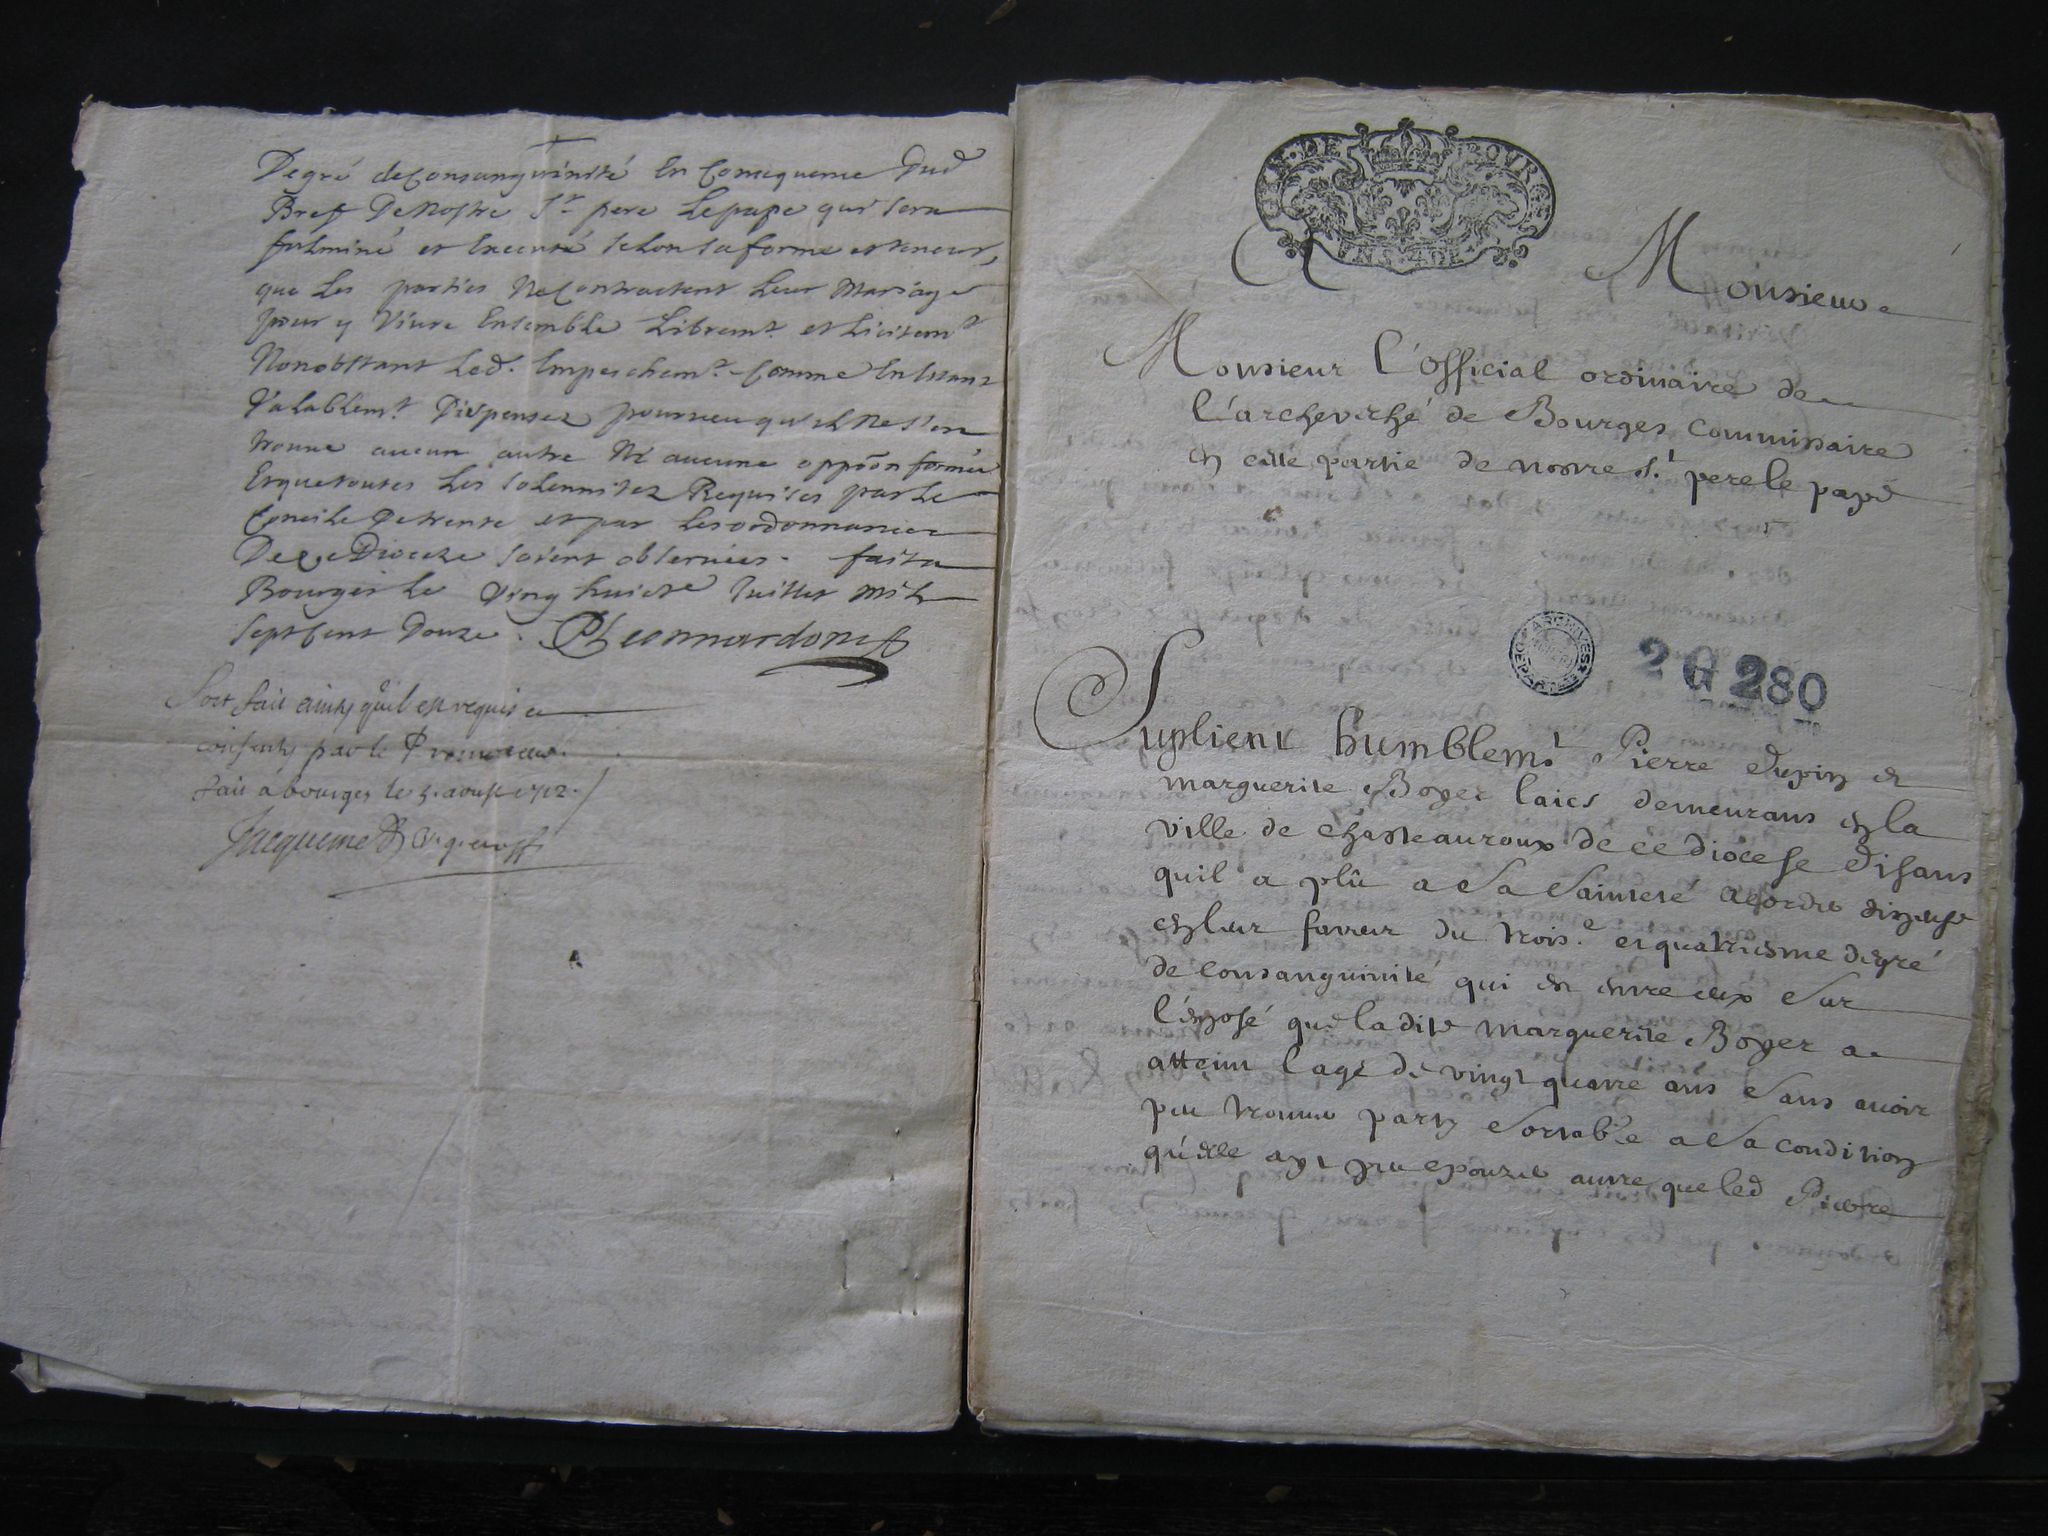 Degré de Consanguinité En Consequence Dud
Bref De Nostre St pere Le pape qui sera
fulminé et Executé selon sa forme et teneur,
que Les parties Ne Contractent Leur Mariage
pour y Vivre Ensemble Libremt et Licitemt
Nonobstant Led. Empeschemt Comme En Estant
Valablemt Dispensez pourveu qu'il Ne s'en
trouve aucun autre Ni aucune oppõon formée
Et que toutes Les solennitez Requises par Le
Concile De trente et par Les ordonnances
De Ce Dioceze soient observées. fait a
Bourges Le Ving huicte Juillet Mil
sept Cent Douze.
Soit fait ainsy qu'il est requis et
consenty par le Promoteur.
fait à bourges le 5. aoust 1712.
Jacquemet
GEN. DE BOURGES
A Monsieur
Monsieur l'Official ordinaire de
l'archevesché de Bourges Commissaire
en cette partie de nostre St. pere le pape
ARCHIVES
2 G 280
Suplient humblemt. Pierre Dupin et
marguerite Boyer laics demeurans en la
ville de chasteauroux de ce diocese disans
quil a plû a Sa Sainteté acorder dispense
en leur faveur du trois.e et quatriesme degré
de consanguinité qui est entre eux sur
l'exposé que ladite marguerite Boyer a
atteint lage de vingt quatre ans sans avoir
peu trouver party sortable a sa condition
qu'elle ayt peu epouzer autre que led Pierre